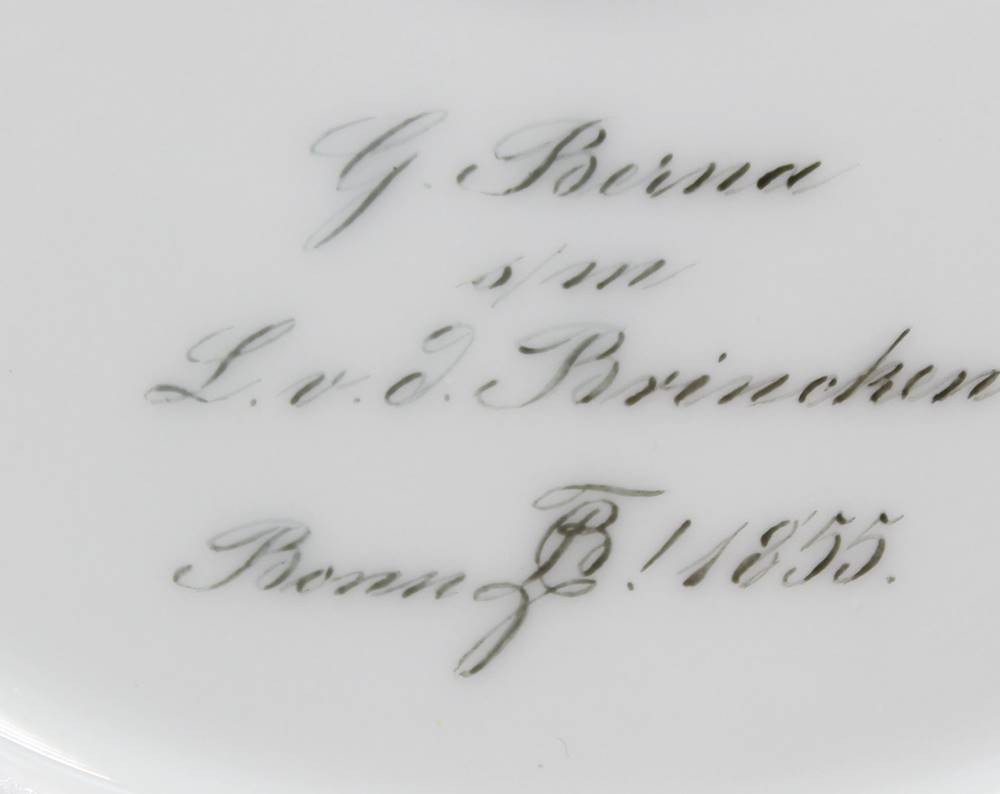 G. Berna
s/m
L. v. d. Brincken
Bonn ! 1855.